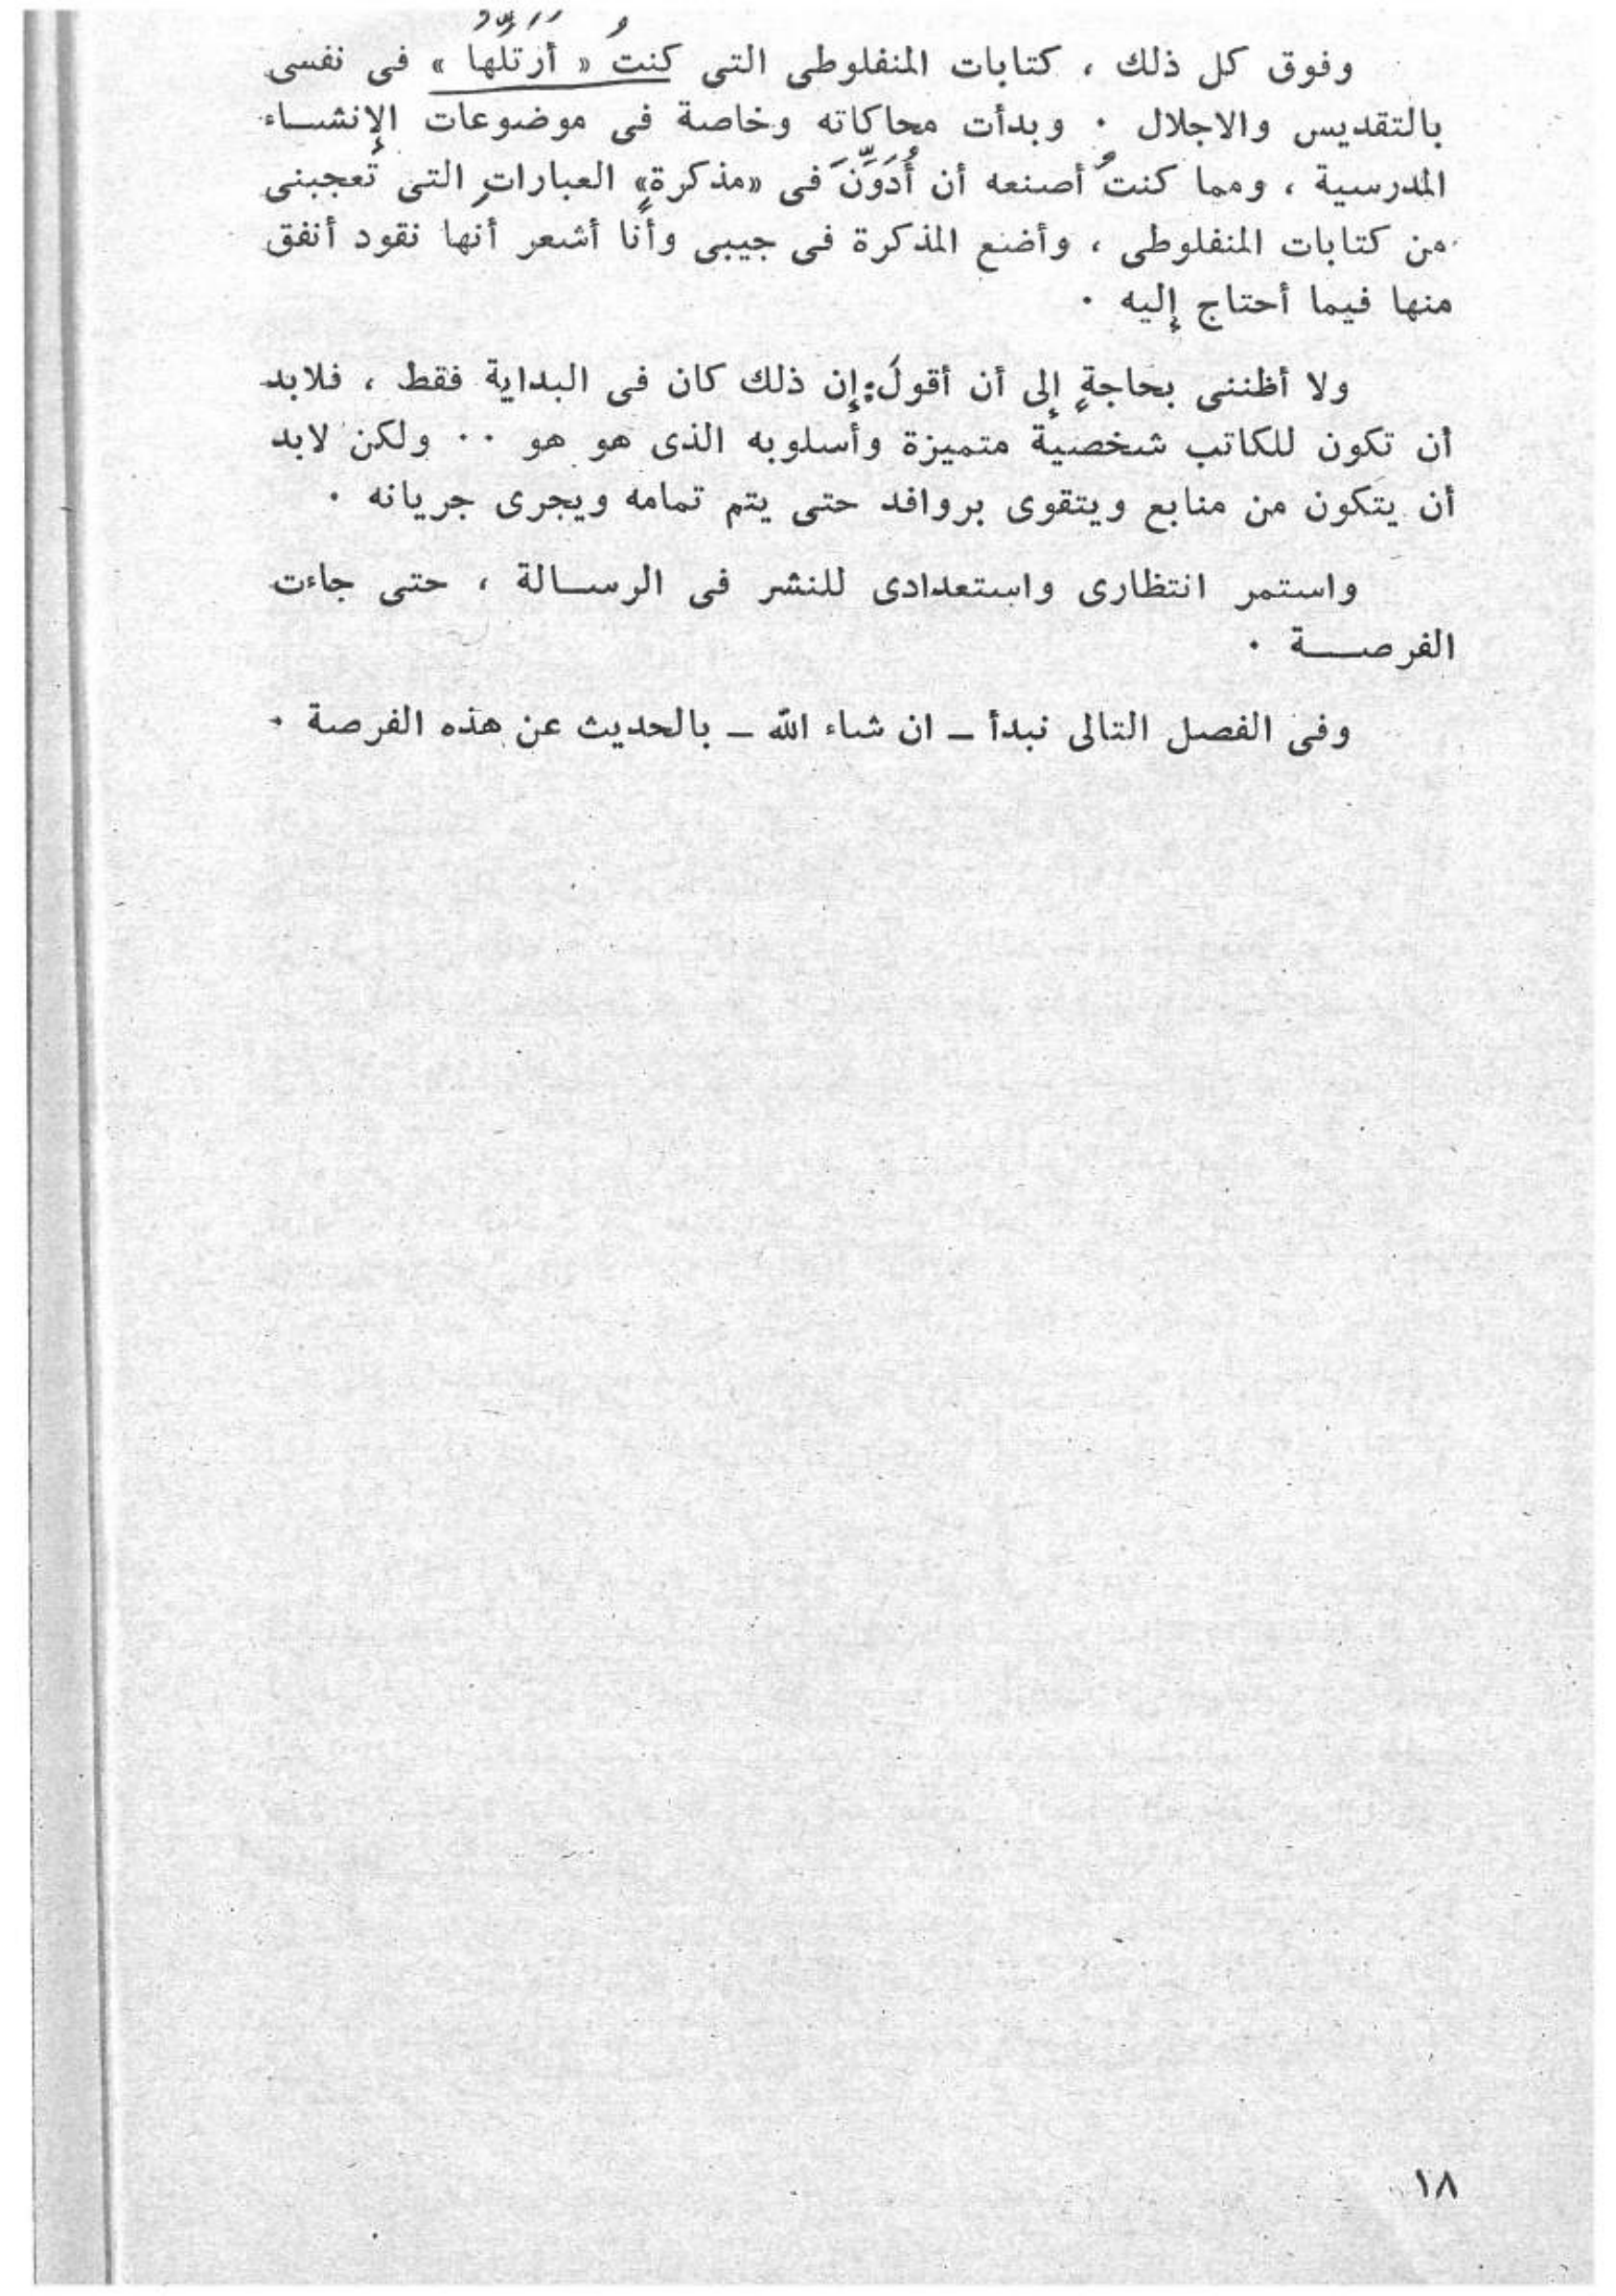 وفوق كل ذلك ، كتابات المنفلوطى التى كنتُ « أرتلها » فى نفسى
بالتقديس والاجلال . وبدأت محاكاته وخاصة فى موضوعات الإنشـاء
المدرسية ، ومما كنتُ أصنعه أن أُدَوِّنَ فى «مذكرةٍ» العباراتِ التى تُعجبنى
من كتابات المنفلوطى ، وأضع المذكرة فى جيبى وأنا أشعر أنها نقود أنفق
منها فيما أحتاج إليه .
ولا أظننى بحاجةٍ إلى أن أقولَ : إن ذلك كان فى البداية فقط ، فلابد
أن تكون للكاتب شخصية متميزة وأسلوبه الذى هو هو .. ولكن لابد
أن يتكون من منابع ويتقوى بروافد حتى يتم تمامه ويجرى جريانه .
واستمر انتظارى واستعدادى للنشر فى الرسـالة ، حتى جاءت
الفرصـة .
وفى الفصل التالى نبدأ – ان شاء الله – بالحديث عن هذه الفرصة .
١٨